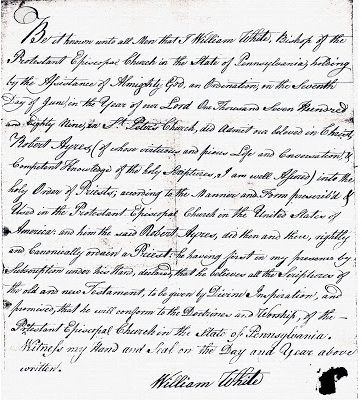 Be it known unto all Men that I William White, Bishop of the
Protestant Episcopal Church in the State of Pennsylvania, holding
by the Assistance of Almighty God, an Ordination, on the Seventh
Day of June, in the Year of our Lord One Thousand Seven Hundred
and Eighty Nine, in St. Peter's Church, did Admit our beloved in Christ
Robert Ayres, (of whose virtuous and pious Life and Conversation &
Competent Knowledge of the holy Scriptures, I am well Assured) into the
holy Order of Priests, according to the Manner and Form prescrib'd &
Used in the Protestant Episcopal Church in the United States of
America: and him the said Robert Ayres, did then and there, rightly
and Canonically ordain a Priest: he having first in my presence by
Subscription under his Hand, declared, that he believes all the Scriptures of
the old and new Testament, to be given by Divine Inspiration, and
promised, that he will conform to the Doctrines and Worship, of the
Protestant Episcopal Church in the State of Pennsylvania.
Witness my Hand and Seal on the Day and Year above
written.
William White